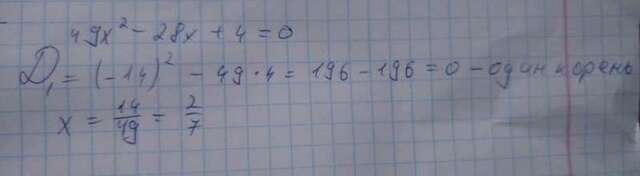 49x² - 28x + 4 = 0
D₁ = (-14)² - 49·4 = 196 - 196 = 0 - один корень
x = 14/49 = 2/7